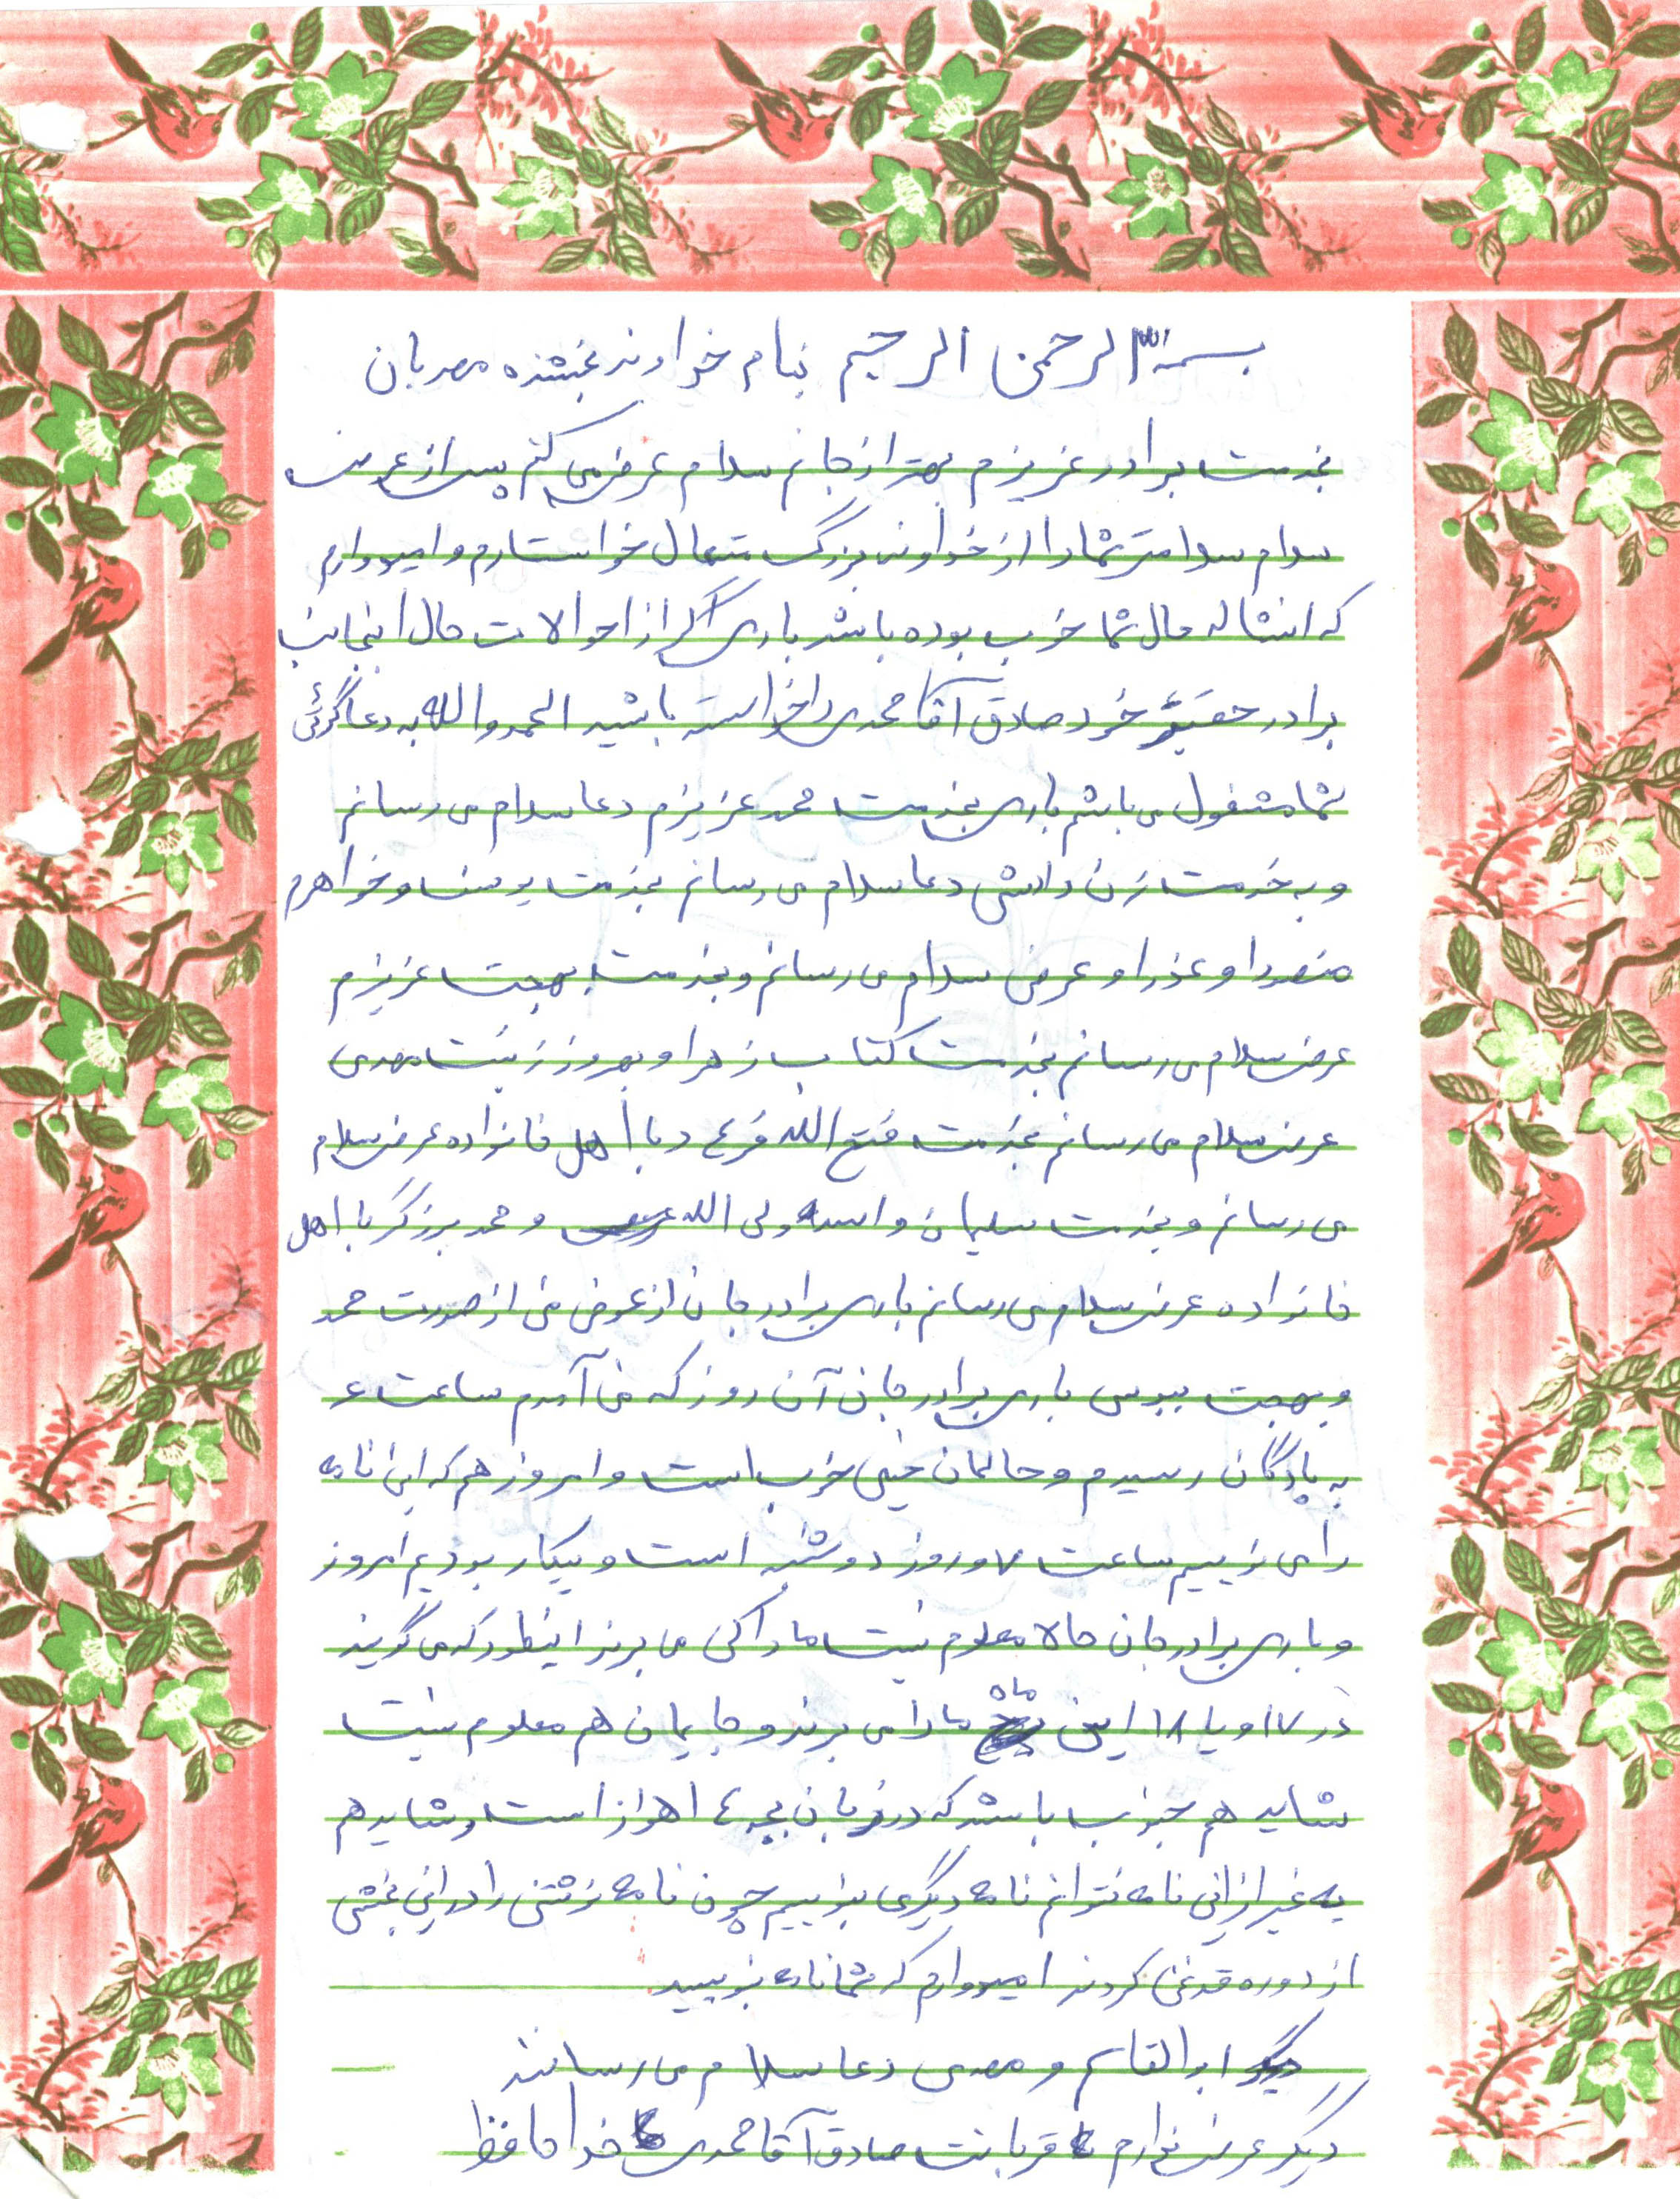 بسمه الله الرحمن الرحیم بنام خداوند بخشنده مهربان
بخدمت برادر عزیزم بهتر از جانم سلام عرض می کنم پس از عرض
سلام سلامتی شما را از خداوند بزرگ متعال خواستارم و امیدوارم
که انشاله حال شما خوب بوده باشد باری اگر از احوالات حال اینجانب
برادر حقیر خود صادق آقامحمدی را خواسته باشید الحمدوالله به دعاگوئی
شما مشغول می باشم باری بخدمت محمد عزیزم دعا سلام می رسانم
و به خدمت زن داداش دعا سلام می رسانم بخدمت یوسف و خواهرم
منصورا و عذرا و عرض سلام می رسانم و بخدمت بهجت عزیزم
عرض سلام می رسانم بخدمت کتاب زهرا و بهروز زینت مهدی
عرض سلام می رسانم بخدمت فتح الله با اهل خانواده عرض سلام
می رسانم و بخدمت سلیمان و اسداله ولی الله و محمد برزگر با اهل
خانواده عرض سلام می رسانم باری برادر جان از عوض من از صورت محمد
و بهجت ببوس باری برادر جان آن روز که من آمدم ساعت ع
به پادگان رسیدم و حالمان خیلی خوب است و امروز هم که این نامه
را می نویسم ساعت ۷ و روز دوشنبه است و بیکار بودیم امروز
و باری برادر جان حالا معلوم نیست ما را کی می برند اینطور که می گویند
در ۱۷ و یا ۱۸ این ماه ما را می برند و جایمان هم معلوم نیست
شاید هم جنوب باشد که در اهواز است و شاید هم
به غیر از این نامه نتوانم نامه دیگری بنویسم چون نامه نوشتن را در این بخش
از دوره قدغن کردند امیدوارم که شما نامه بنویسید
دیگر ابوالقاسم و مهدی دعا سلام می رسانند
دیگر عرض ندارم قربانت صادق آقامحمدی خداحافظ